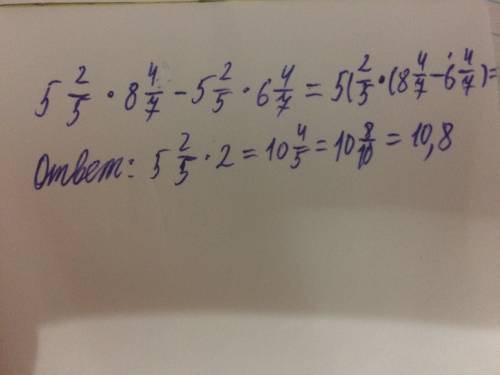 5 2/5 · 8 4/7 - 5 2/5 · 6 4/7 = 5(2/5 · (8 4/7 - 6 4/7) =
Ответ: 5 2/5 · 2 = 10 4/5 = 10 8/10 = 10,8